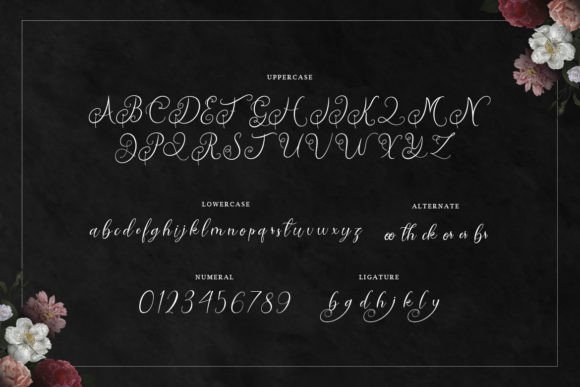 UPPERCASE
A B C D E F G H I J K L M N
O P Q R S T U V W X Y Z
LOWERCASE
a b c d e f g h i j k l m n o p q r s t u v w x y z
ALTERNATE
th ck or er br
NUMERAL
0 1 2 3 4 5 6 7 8 9
LIGATURE
b g d h j k l y